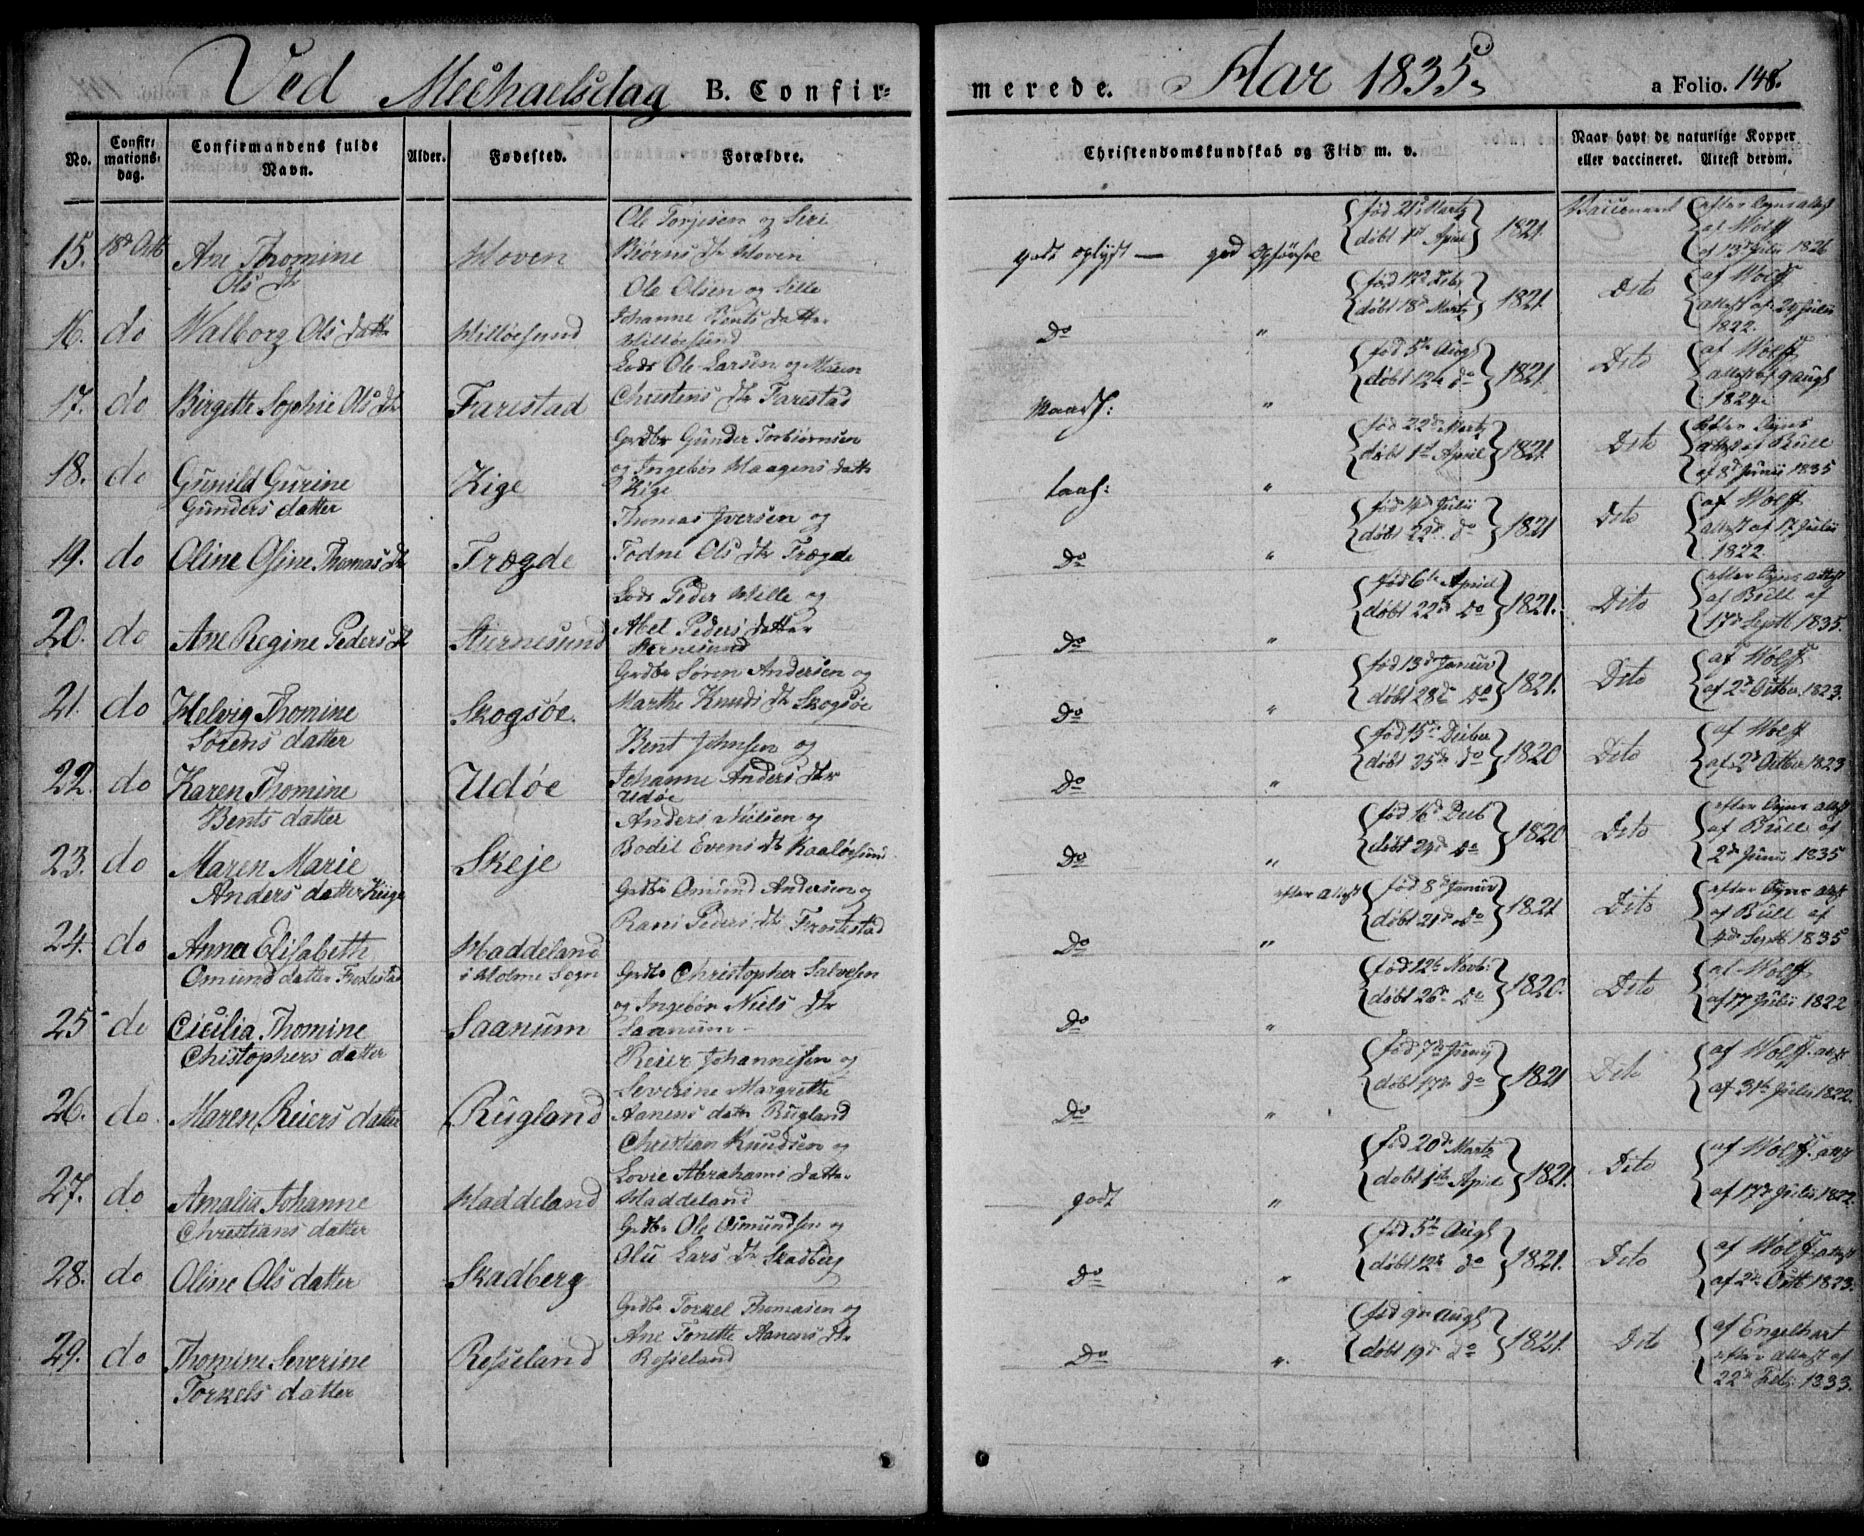 Ved Mechaelsdag B. Confir=
merede. Aar 1835. a Folio. 148.
No. Confir= mations= dag. Confirmandens fulde Navn. Alder. Fødested. Forældre.
Christendomskundskab og Flid m. v. Naar havt de naturlige Kopper eller vaccineret. Attest derom.
Ole Torjesen og Siri
15. 18de Octb Ane Thomine Moven Biørns Dtr Moven
Ols Dtr
godt oplyst — god Opførsel født 21de Martz døbt 1st April 1821 Vaccineret efter attest af Wolff af 13de Julii 1826
Ole Olsen og Sille
16. do Walborg Ols datter Willøesund Johanne Bents Datter
Willøesund
Do " født 12te Febr døbt 18de Martz 1821 Dito af Wolff attest af 20 Julii 1822.
Lods Ole Larsen og Maren
17. do Birgette Sophie Ols Dtr Farestad Christens Dtr Farestad
Maadl: " fød 5te Augl døbt 12te do 1821 Dito af Wolff attest af 9 Augl 1824.
Grdbr Gunder Torbiørnsen
18. do Gunild Gurine Kige og Ingebor Haagens datter
Gunders datter Kige
taal: " fød 22de Martz døbt 1st April 1821 Dito efter Syns attest af Bull af 8de Junii 1835
Thomas Iversen og
19. do Oline Osine Thomas Dtr Trægde Todne Ols Dtr Trægde
Do " fød 14de Julii døbt 22de do 1821 Dito af Wolff attest af 17 Julii 1822.
Lods Peder Wille og
20. do Ane Regine Peders Dtr Stiernesund Abel Peders Datter
Stiernesund
Do " fød 6te April døbt 22de Do 1821. Dito efter Syns attest af Bull af 17de Septb 1835.
Grdbr Søren Andersen og
21. do Helvig Thomine Skogsøe. Marthe Knuds Dtr Skogsøe
Sørens datter
Do " fød 13de Januar døbt 28de Do 1821. Dito af Wolff af 2de Octber 1823.
Bent Johnsen og
22. do Karen Thomine Udøe Johanne Anders Dtr
Bents datter Udøe
Do " fød 15de Decber døbt 25de do 1820 Dito af Wolff af 2de Octber 1823
Anders Nielsen og
23. do Maren Marie Skeje Bodil Evens Dtr Kaaløesund
Anders datter Kiige
Do " fød 16de Decb døbt 24de Do 1820 Dito efter Syns attest af Bull af 2de Junii 1835
Grdbr Omund Andersen og
24. do Anna Elisabeth Haddeland Rani Peders Dtr Frostestad
Omund datter Frostestad i Holme Sogn
Do " efter Attest fød 8de Januar døbt 21de Do 1821 Dito efter Syns attest af Bull af 4de Septb 1835
Grdbr Christopher Salvesen
25 do Cicilia Thomine Saanum og Ingebor Niels Dtr
Chistophers datter Saanum
Do " fød 12te Novb: døbt 26de Do 1820. Dito af Wolff af 17 Julii 1822
Reier Johannesen og
Severine Margrethe
26. do. Maren Reiers datter Rugland Aanens datr Rugland
Do " fød 7de Junij døbt 17de do 1821 Dito af Wolff attest af 31te Julii 1822.
Christian Knudsen og
Lovie Abrahams datter
27. do Amalia Johanne Haddeland Haddeland
Christians datter
godt " fød 20de Martz døbt 1ste April 1821. Dito af Wolff attest af 17de Julii 1822
Grdbr Ole Osmundsen og
28. do Oline Ols datter Skadberg Olu Lars Dtr Skadberg
Do " fød 5te Augl døbt 12te do 1821. Dito af Wolff attest af 2de Octb 1823.
Grdbr Torkel Thomasen og
29. do Thomine Severine Rosseland Ane Tonette Aanens Dtr
Torkels datter Rosseland
Do " fød 9de Augl døbt 19de Do 1821. Dito af Engelhart efter Attest af 22de Feb: 1833.